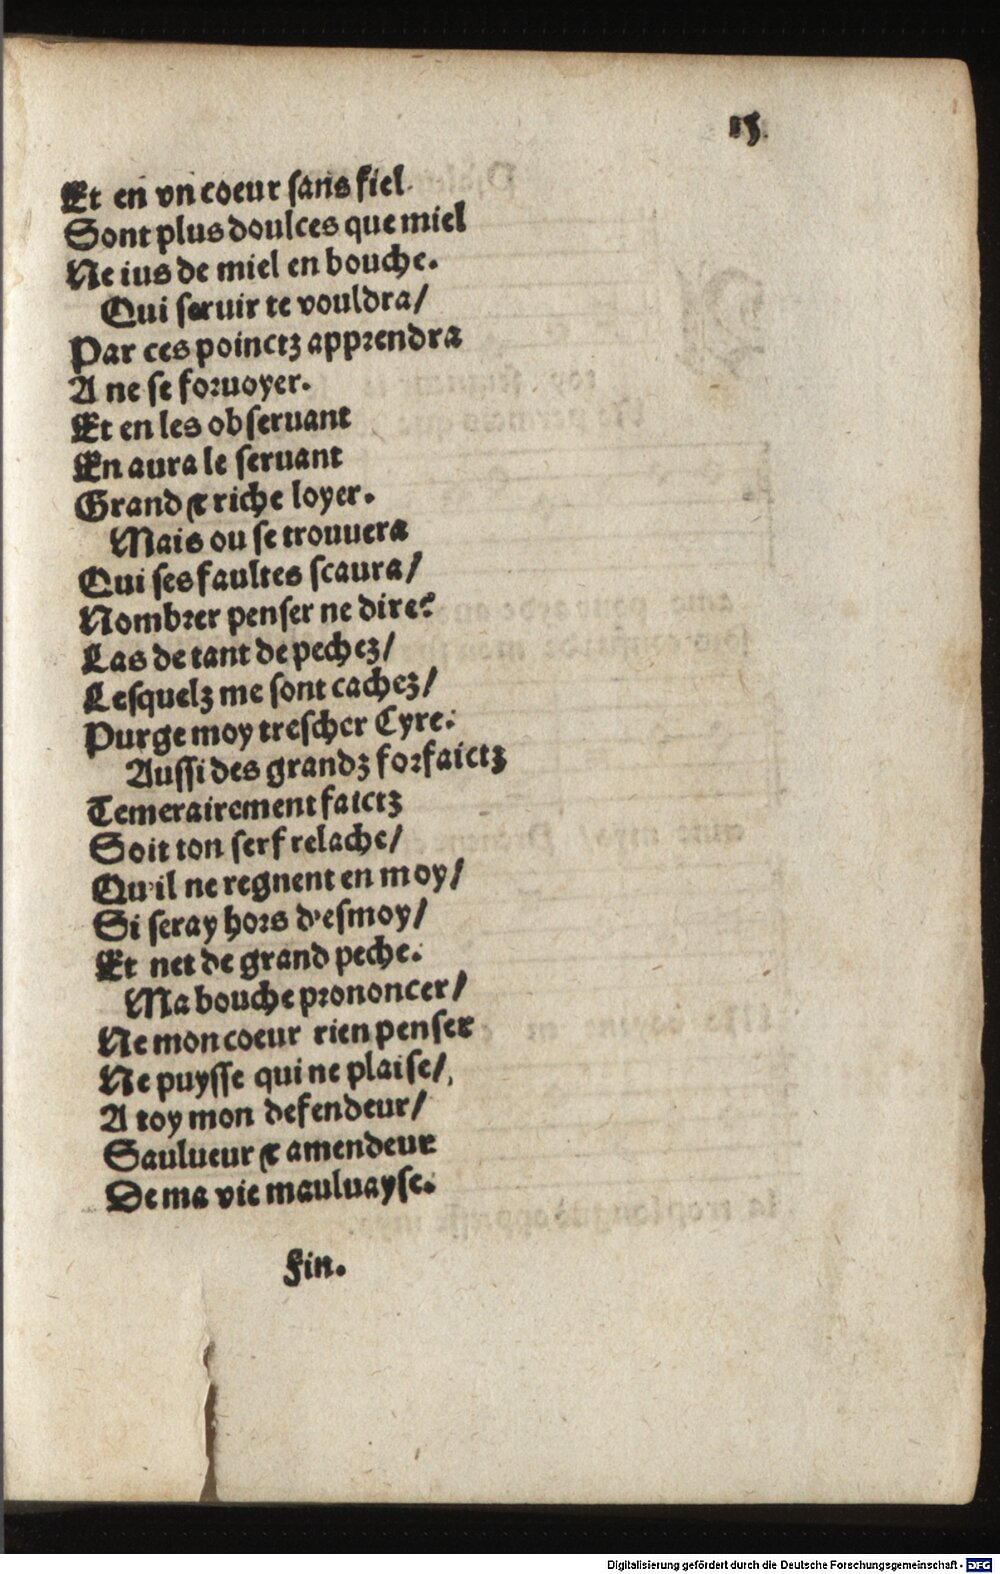 15.
Et en vn coeur sans fiel
Sont plus doulces que miel
Ne ius de miel en bouche.
Qui seruir te vouldra/
Par ces poinctz apprendra
A ne se foruoyer.
Et en les obseruant
En aura le seruant
Grand & riche loyer.
Mais ou se trouuera
Qui ses faultes scaura/
Nombrer penser ne dire?
Las de tant de pechez/
Lesquelz me sont cachez/
Purge moy trescher Cyre.
Aussi des grandz forfaictz
Temerairement faictz
Soit ton serf relache/
Qu'il ne regnent en moy/
Si seray hors d'esmoy/
Et net de grand peche.
Ma bouche prononcer/
Ne mon coeur rien penser
Ne puysse qui ne plaise/,
A toy mon defendeur/
Saulueur & amendeur
De ma vie mauluayse.
Fin.
Digitalisierung gefördert durch die Deutsche Forschungsgemeinschaft - DFG